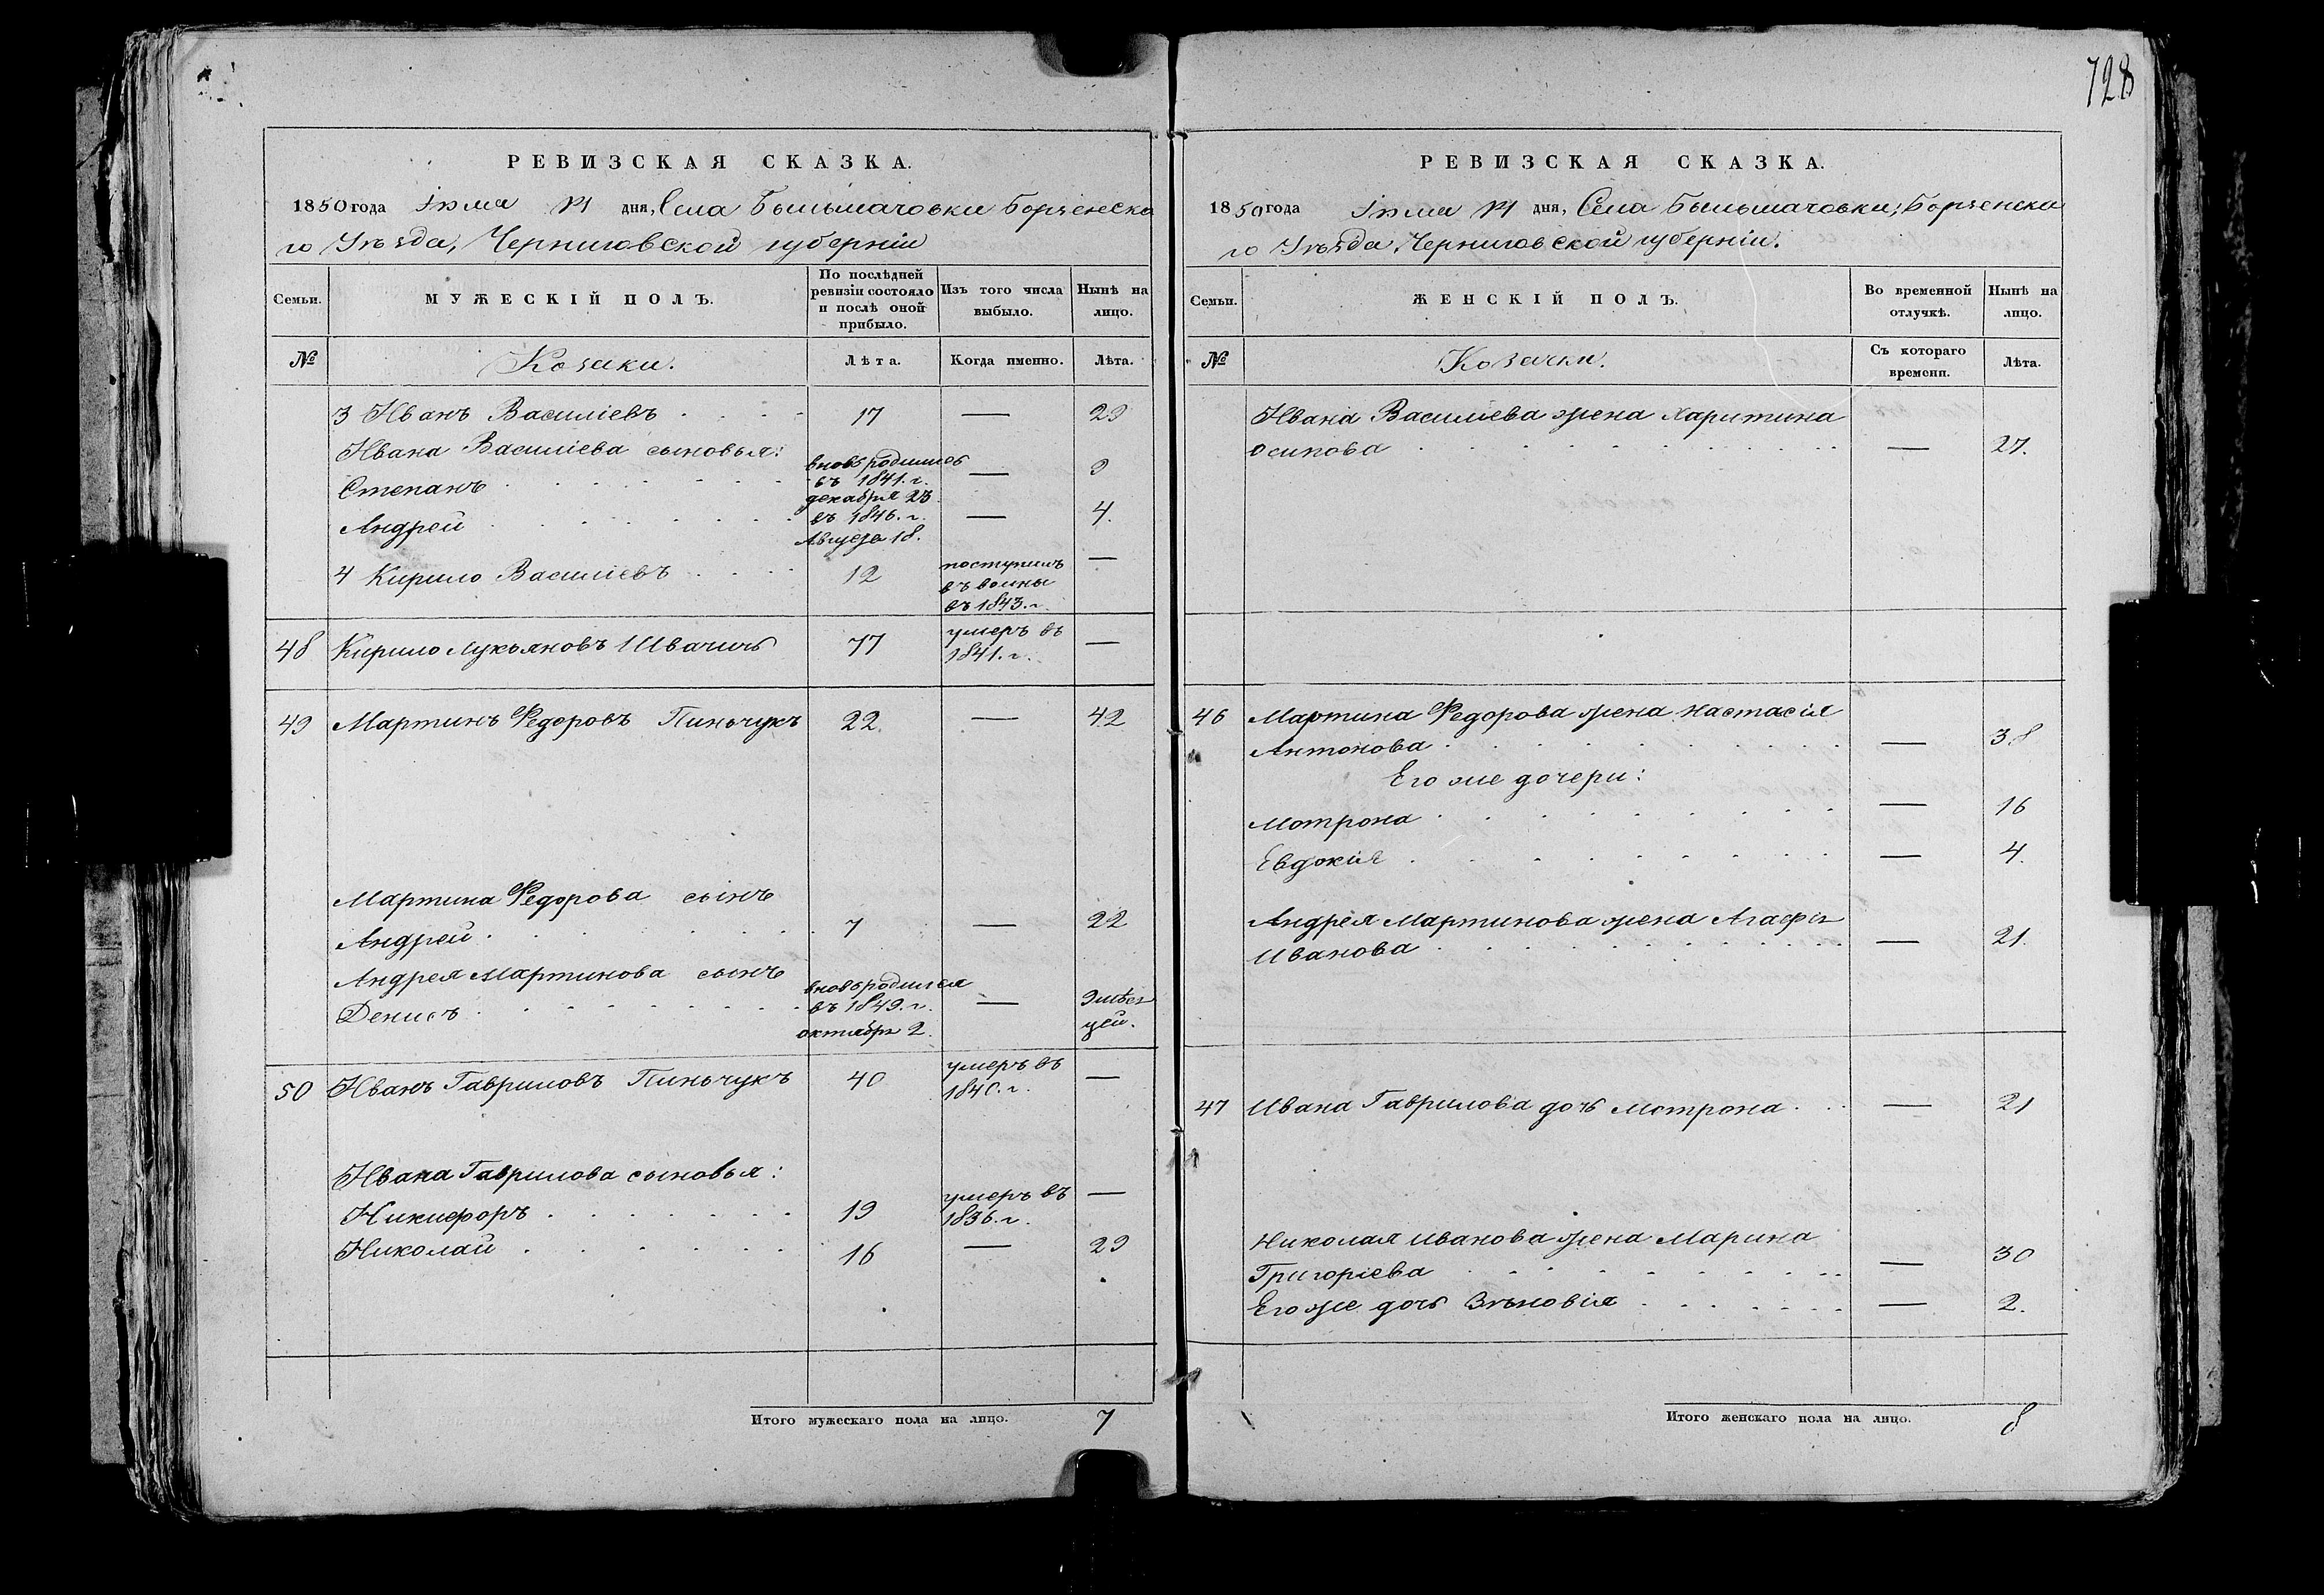 728
РЕВИЗСКАЯ СКАЗКА.
1850 года Iюля 11 дня, Села Бильмачовки Борзенска
го Уѣзда, Черниговской губернiи
Семьи.
МУЖЕСКІЙ ПОЛЪ.
По послѣдней
ревизіи состояло
и послѣ оной
прибыло.
Изъ того числа
выбыло.
Нынѣ на
лицо.
№
Козаки.
Лѣта.
Когда именно.
Лѣта.
3 Иванъ Василіевъ 17 — 29
Ивана Василіева сыновья:
Степанъ вновь родился въ 1841. г. декабря 23 — 9
Андрей въ 1846. г. Августа 18. — 4.
4 Кирило Василіевъ 12 поступилъ въ воины въ 1843. г. —
48 Кирило Лукьяновъ Швачичъ 77 умеръ въ 1841. г. —
49 Мартинъ Федоровъ Пиньчукъ 22 — 42
Мартина Федорова сынъ
Андрей 7 — 22
Андрея Мартинова сынъ
Денисъ вновь родился въ 1849. г. октября 2. — 9 мѣся цей.
50 Иванъ Гавриловъ Пиньчукъ 40 умеръ въ 1840. г. —
Ивана Гаврилова сыновья:
Никифоръ 19 умеръ въ 1836. г. —
Николай 16 — 29
Итого мужескаго пола на лицо. 7
РЕВИЗСКАЯ СКАЗКА.
1850 года Iюля 11 дня, Села Бильмачовки, Борзенска
го Уѣзда, Черниговской губернiи.
Семьи.
ЖЕНСКІЙ ПОЛЪ.
Во временной
отлучкѣ.
Нынѣ на
лицо.
№
Козачки.
Съ котораго
времени.
Лѣта.
Ивана Василіева жена Харитина
Осипова — 27.
46 Мартина Федорова жена Настасія
Антонова — 38
Его же дочери:
Мотрона — 16
Евдокія — 4.
Андрея Мартинова жена Агафія
Иванова — 21.
47 Ивана Гаврилова дочь Мотрона — 21
Николая Иванова жена Марина
Григоріева — 30
Его же дочь Зѣновія — 2.
Итого женскаго пола на лицо. 8